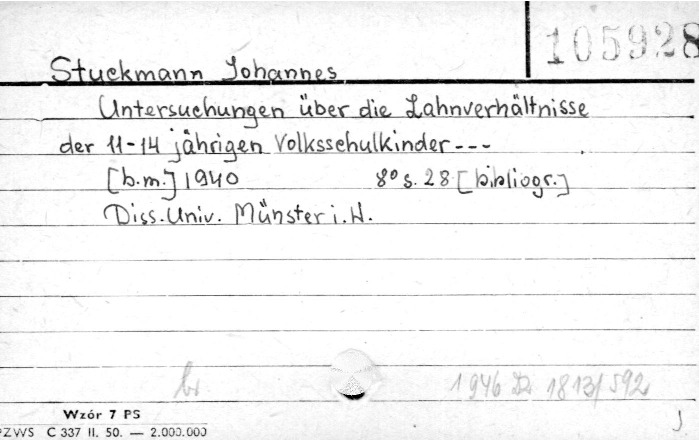 105928
Stuckmann Johannes
Untersuchungen über die Zahnverhältnisse
der 11-14 jährigen Volksschulkinder ---
[b.m.] 1940 8° s. 28 [bibliogr.]
Diss. Univ. Münster i. W.
br
1946 D 1813/592
Wzór 7 PS
PZWS C 337 II. 50. — 2.000.000